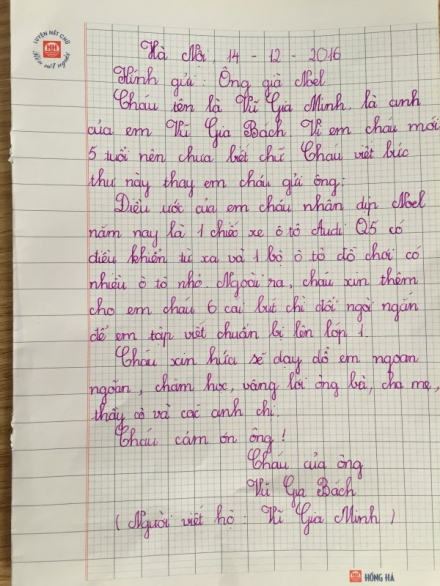 LUYỆN NÉT CHỮ
Hà Nội, 14 - 12 - 2016
Kính gửi: Ông già Noel
Cháu tên là Vũ Gia Minh là anh
của em Vũ Gia Bách Vì em cháu mới
5 tuổi nên chưa biết chữ Cháu viết bức
thư này thay em cháu gửi ông:
Điều ước của em cháu nhân dịp Noel
năm nay là 1 chiếc xe ô tô Audi Q5 có
điều khiển từ xa và 1 bộ ô tô đồ chơi có
nhiều ô tô nhỏ. Ngoài ra, cháu xin thêm
cho em cháu 6 cái bút chì đổi ngòi ngắn
để em tập viết chuẩn bị lên lớp 1.
Cháu xin hứa sẽ dạy dỗ em ngoan
ngoãn, chăm học, vâng lời ông bà, cha mẹ,
thầy cô và các anh chị.
Cháu cám ơn ông!
Cháu của ông
Vũ Gia Bách
(Người viết hộ: Vũ Gia Minh)
HỒNG HÀ